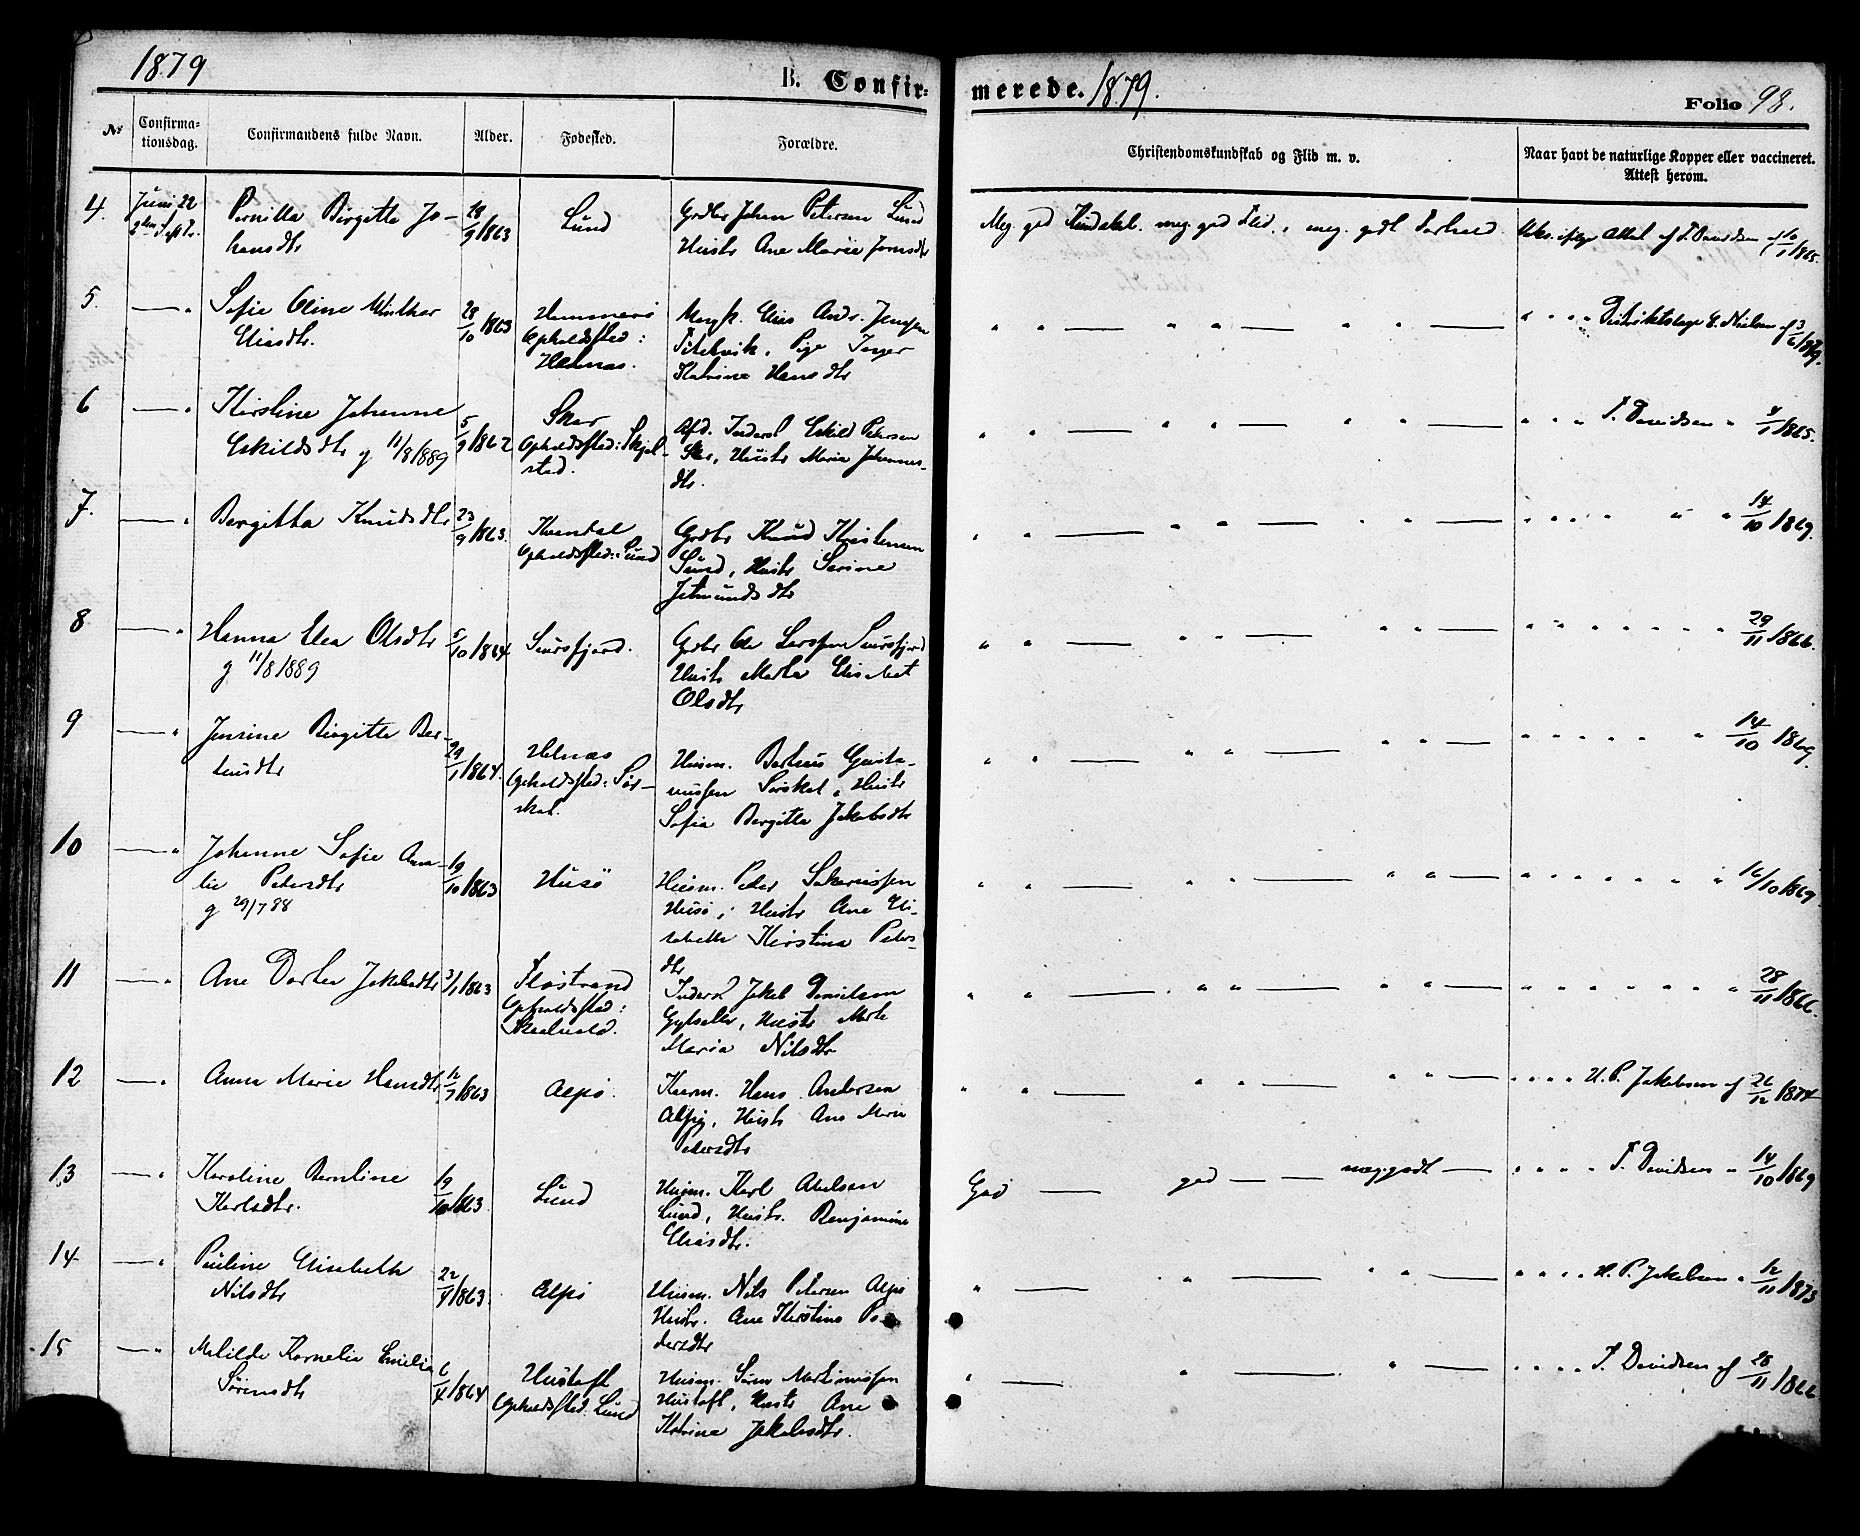 1879
B. Confir-
merede. 1879.
Folio 98.
№
Confirma-
tionsdag.
Confirmandens fulde Navn.
Alder.
Fødested.
Forældre.
Christendomskundskab og Flid m. v.
Naar havt de naturlige Kopper eller vaccineret.
Attest herom.
4.
Juni 22
Pernilla Birgitta Jo-
hansdtr
28/9 1863
Lund
Grdbr Johan Petersen Lund
Hustr Ane Marie Jonsdtr
Meg. god Kundskab. meg. god Flid, meg. godt Forhold
Vaks. ifølge Attest af T. Davidsen af 10/1 1865.
5.
— "
Sofie Oline Winther
Eliasdtr.
28/10 1863
Hummerö
Opholdssted:
Helnæs.
Ungk. Elias Andr. Jensen
Pige Inger
Katrine Hansdtr
" " — " " — " " —
" " " " Distriktslæge C. Nielsen af 3/6 1879.
6
— "
Kirstine Johanne
Eskildsdtr g 11/8 1889
5/9 1862
Skar
Opholdssted: Skjel-
stad.
Afd. Inderst Eskild Petersen
Skar, Hustr Maria Johannes-
dtr.
" " — " " — " " —
" " " T. Davidsen " 4/1 1865.
7.
— "
Bergitta Knudsdtr
23/9 1863.
Kvandal
Opholdssted: Lund
Grdbr Knud Kristensen
Lund, Hustr Serine
Jetmundsdtr
" " — " " — " " —
" " " " " " 14/10 1869.
8
— "
Hanna Elea Olsdtr
g 11/8 1889
5/10 1864
Simesfjord.
Grdbr Ole Larssen Sinesfjord
Hustr Marta Elisabet
Olsdtr
" " — " " — " " —
" " " " " " " 29/11 1866.
9
— "
Jensine Birgitte Ber-
teusdtr
29/1 1864.
Helnæs
Opholdssted: Sör-
skat.
Husm. Berteus Gunta-
nussen Sørskat, Hustr
Sofia Bergitte Jakobsdtr
" " — " " — " " —
" " " " " " 14/10 1869.
10
— "
Johanne Sofie Ama-
lie Petersdtr
g 29/7 88
19/10 1863
Husö
Husm. Peder Sakariassen
Husö, Hustr Ane Eli-
sabeth Kirstina Peters-
dtr
" " — " " — " " —
" " " " " " " 16/10 1869
11
— "
Ane Dortea Jakobsdtr
3/1 1863
Flostrand
Opholdssted:
Inderst Jakob Danielsen
Hustr Marte
Maria Nilsdtr
" " — " " — " " —
" " " " " " " 28/11 1866.
12
— "
Anna Marie Hansdtr
12/7 1863
Alpö.
Husm. Hans Andersen
Alpö, Hustr Ane Marie
Pedersdtr
" " — " " — " " —
" " " " H. P. Jakobsen af 26/12 1874
13
— "
Karoline Bernline
Karlsdtr.
19/10 1863.
Lund
Husm. Karl Abelsen
Lund, Hustr. Benjamine
Eliasdtr.
God — god — — meg. godt —
" " " " T. Davidsen " 14/10 1869
14
— "
Pauline Elisabeth
Nilsdtr
1863.
Alpö
Husm. Nils Petersen Alpö
Hustr. Ane Kirstina Pe-
dersdtr
" — " — " " —
" " " " H. P. Jakobsen " 12/11 1873
15
— "
Matilde Kornelia Emelia
Sörensdtr
6/4 1864
Hustoft
Opholdssted Lund
Husm. Sören Martinussen
Hustoft, Hustr Ane
Katrina Jakobsdtr.
" — " — " —
" " " " T. Davidsen af 28/11 1866